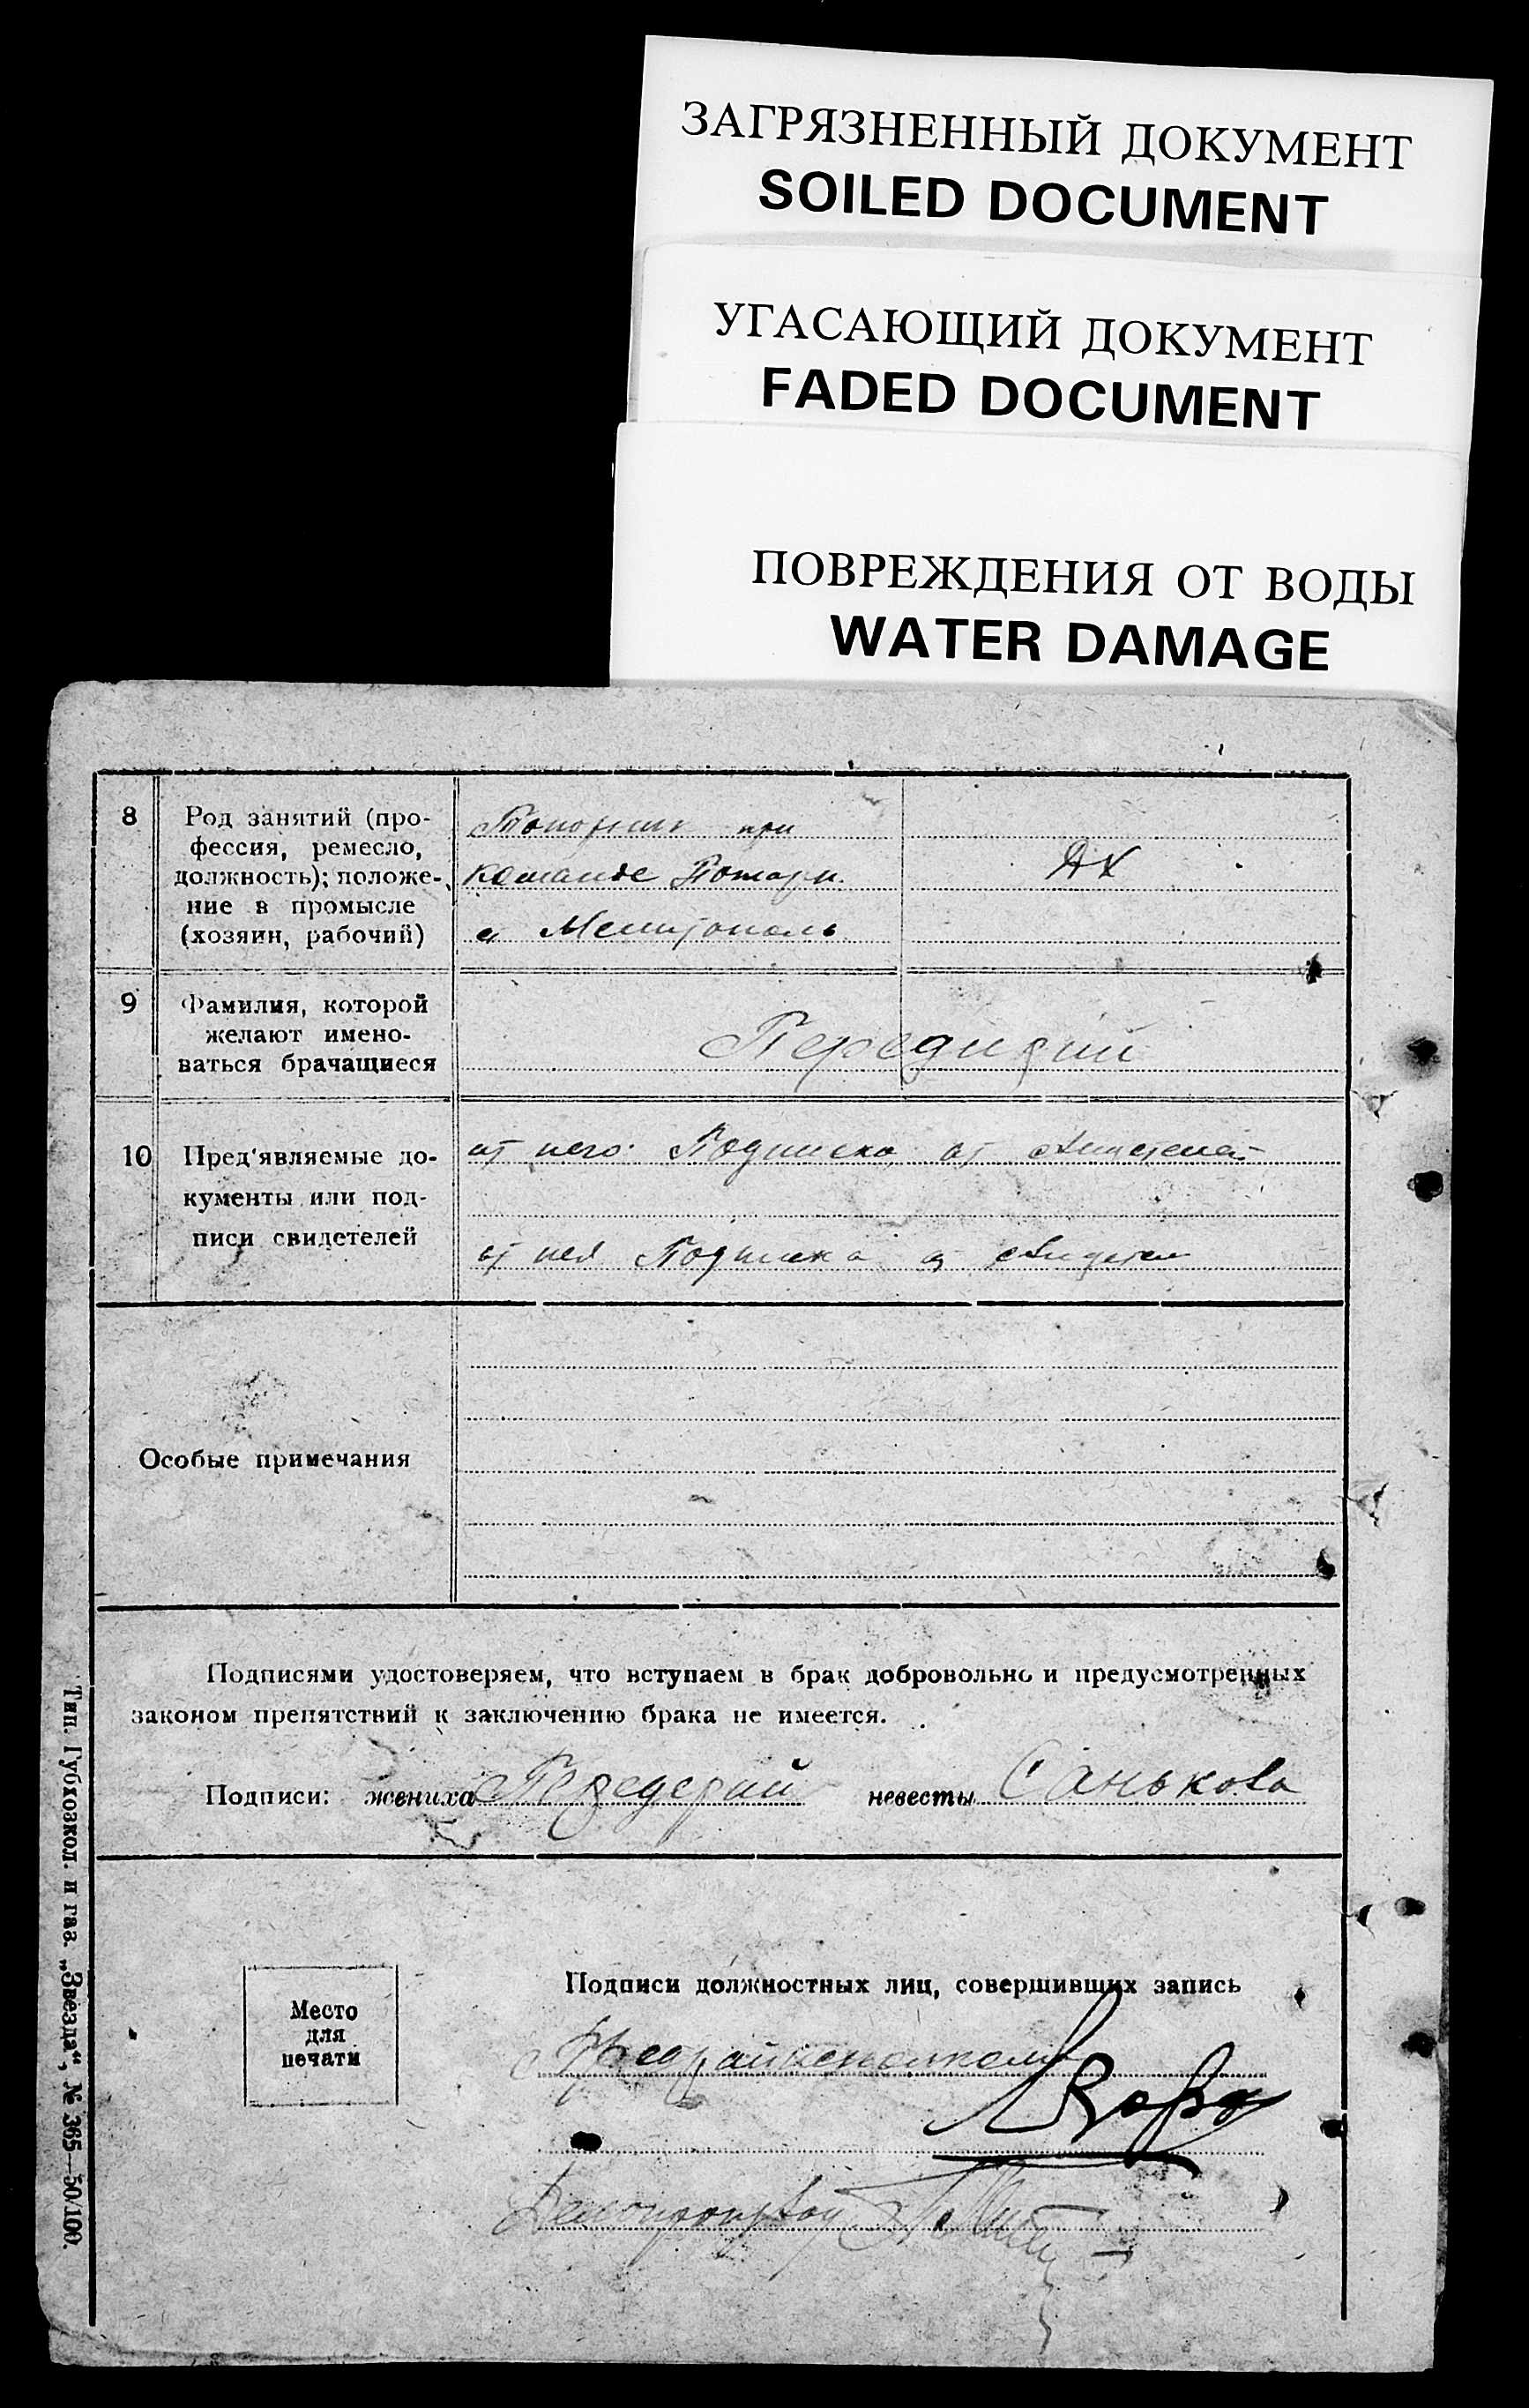 ЗАГРЯЗНЕННЫЙ ДОКУМЕНТ
SOILED DOCUMENT
УГАСАЮЩИЙ ДОКУМЕНТ
FADED DOCUMENT
ПОВРЕЖДЕНИЯ ОТ ВОДЫ
WATER DAMAGE
8
Род занятий (про-
фессия, ремесло,
должность); положе-
ние в промысле
(хозяин, рабочий)
при
команде
Мелитополь
ДХ
9
Фамилия, которой
желают имено-
ваться брачащиеся
Передирий
10
Пред'являемые до-
кументы или под-
писи свидетелей
от него Подписка от
от нея Подписка
Особые примечания
Подписями удостоверяем, что вступаем в брак добровольно и предусмотренных
законом препятствий к заключению брака не имеется.
Подписи: жениха Передерий невесты Санькова
Место
для
печати
Подписи должностных лиц, совершивших запись
Делопроизвод
Тип. Губкоэкол. и газ. „Звезда“, № 365—50/100.